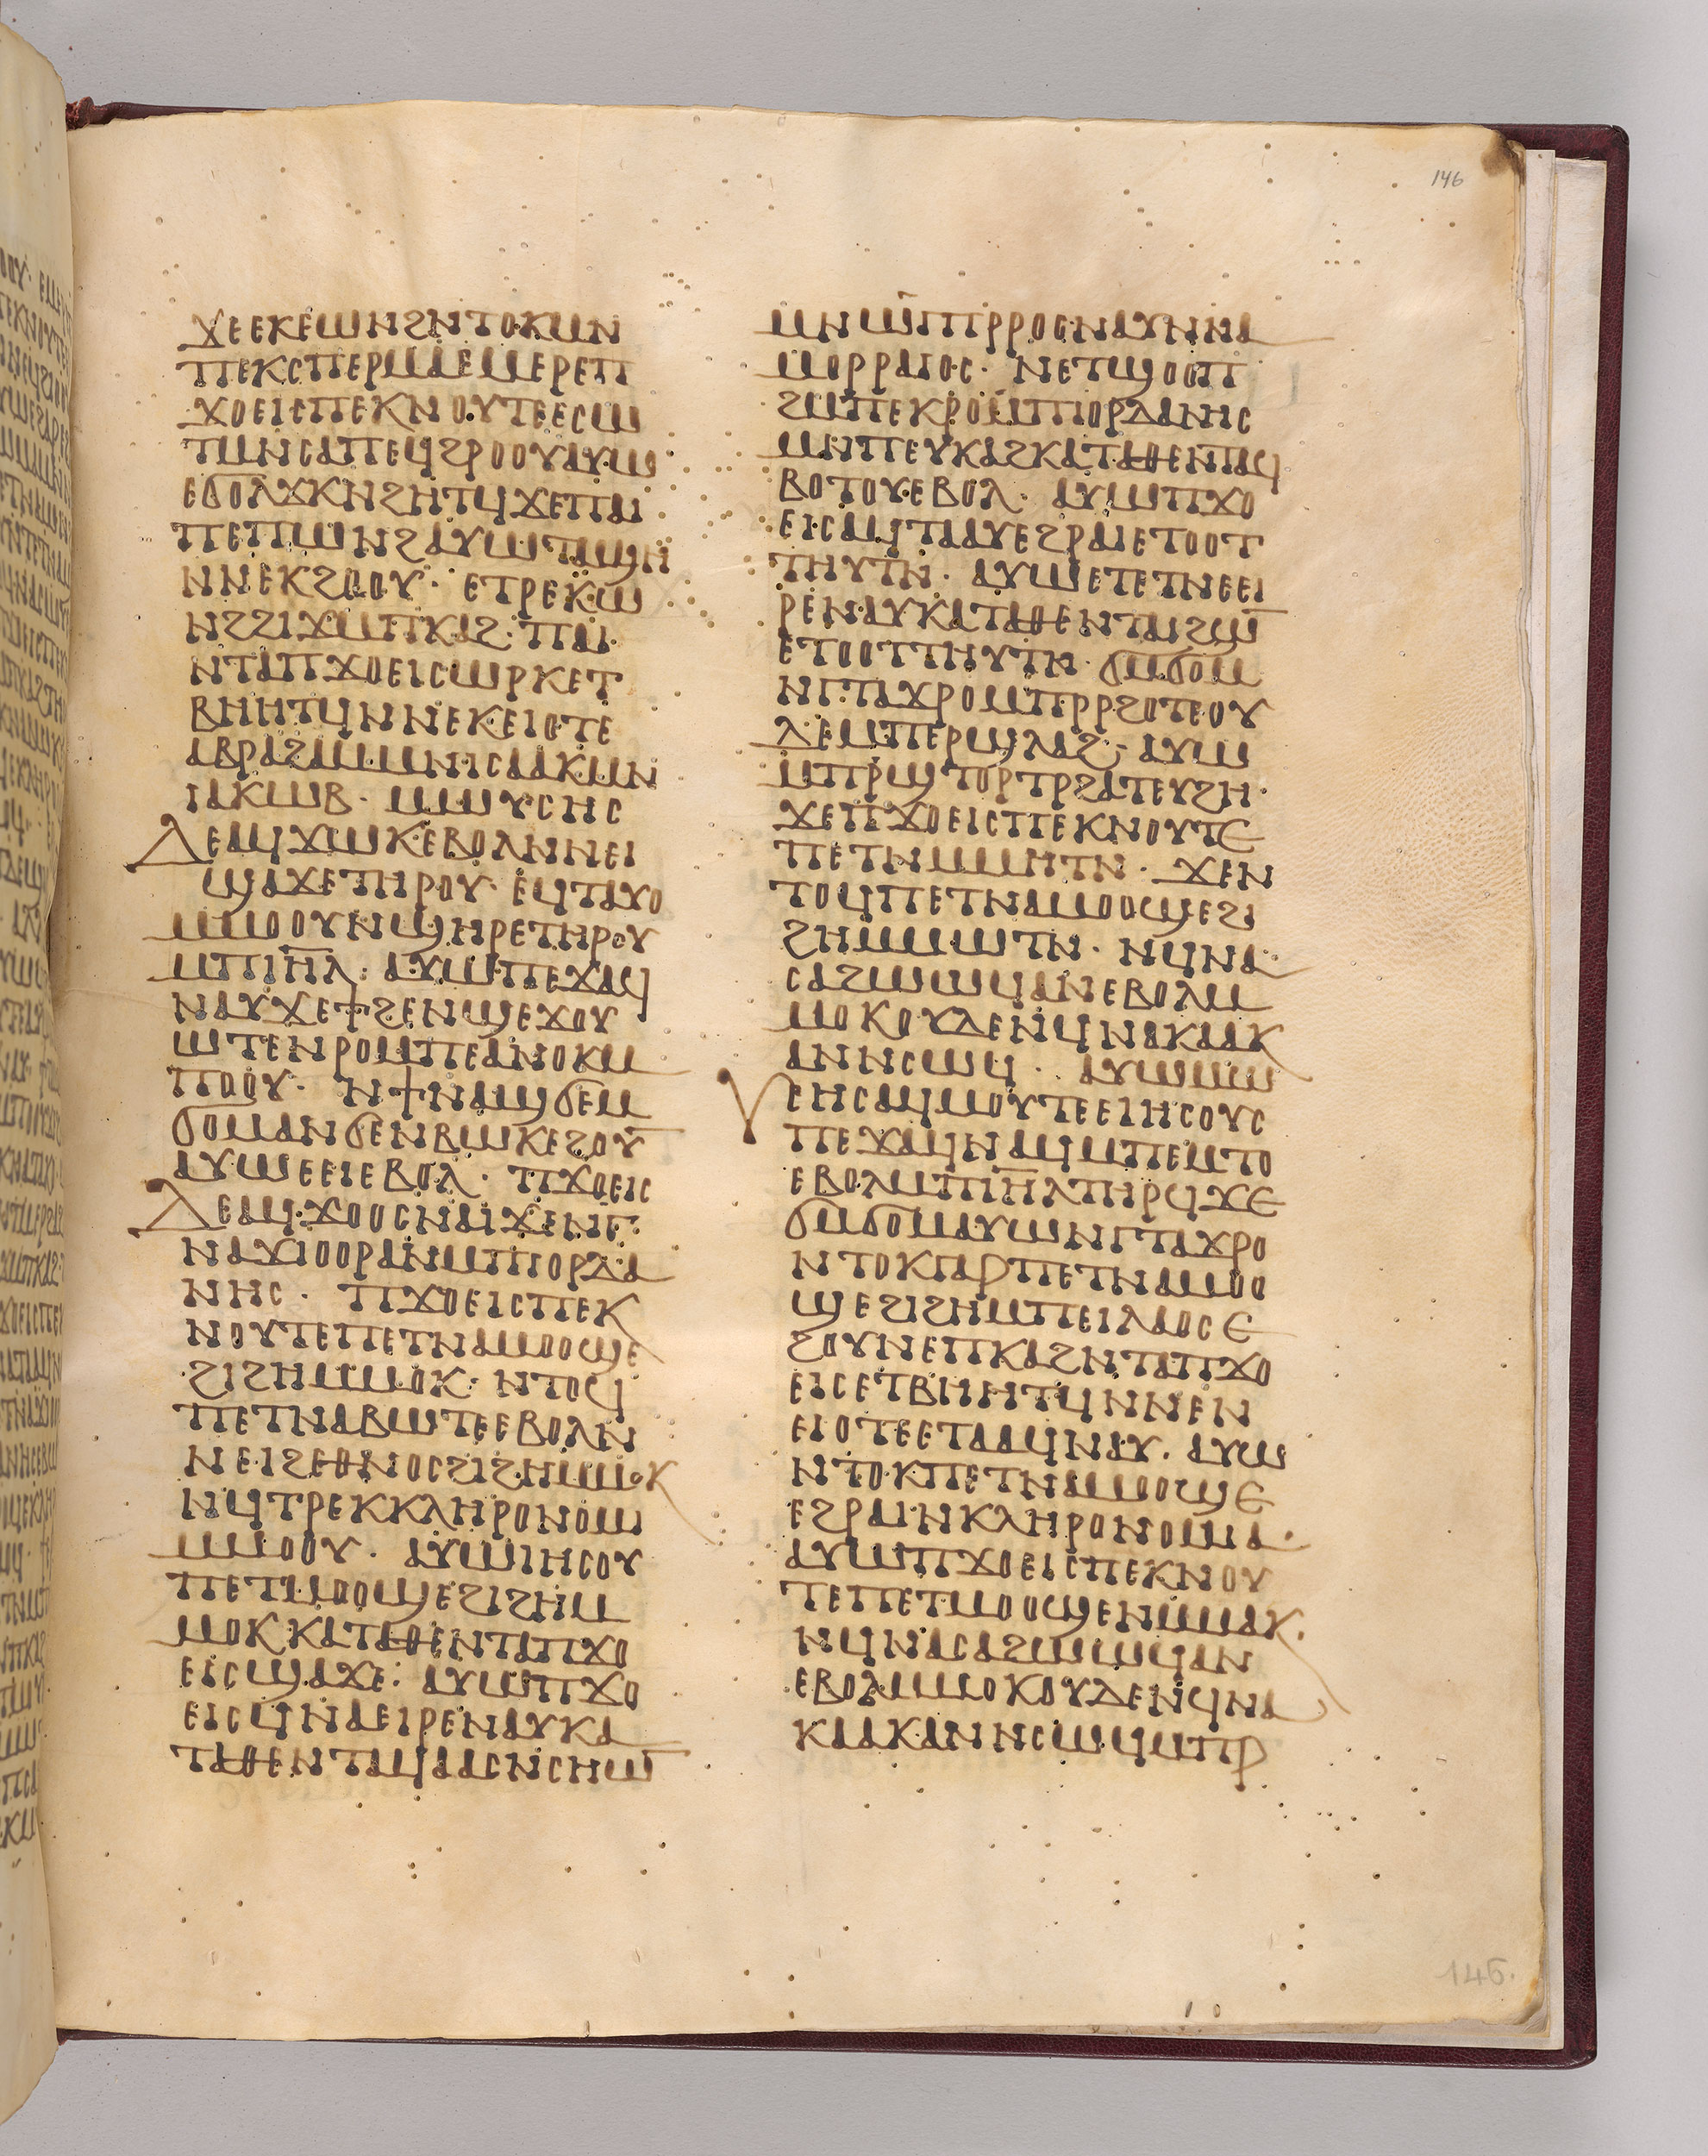 146
ϫⲉⲉⲕⲉⲱⲛϩⲛⲧⲟⲕⲙⲛ
ⲡⲉⲕⲥⲡⲉⲣⲙⲁⲉⲙⲉⲣⲉⲡ
ϫⲟⲉⲓⲥⲡⲉⲕⲛⲟⲩⲧⲉⲉⲥⲱ
ⲧⲙⲛⲥⲁⲡⲉϥϩⲣⲟⲟⲩⲁⲩⲱ
ⲉϭⲟⲗϫⲕⲛϩⲏⲧϥϫⲉⲡⲁⲓ
ⲡⲉⲡⲱⲛϩⲁⲩⲱⲧⲁϣⲏ
ⲛⲛⲉⲕϩⲟⲟⲩ· ⲉⲧⲣⲉⲕⲱ
ⲛϩϩⲓϫⲙⲡⲕⲁϩ· ⲡⲁⲓ
ⲛⲧⲁⲡϫⲟⲉⲓⲥⲱⲣⲕⲉⲧ
ⲃⲏⲏⲧϥⲛⲛⲉⲕⲉⲓⲟⲧⲉ
ⲁⲃⲣⲁϩⲁⲙⲙⲛⲓⲥⲁⲁⲕⲙⲛ
ⲓⲁⲕⲱⲃ· ⲙⲱⲩⲥⲏⲥ
ⲇⲉⲁϥϫⲱⲕⲉⲃⲟⲗⲛⲛⲉⲓ
ϣⲁϫⲉⲧⲏⲣⲟⲩ· ⲉϥⲧⲁⲩⲟ
ⲙⲙⲟⲟⲩⲛϣⲏⲣⲉⲧⲏⲣⲟⲩ
ⲙⲡⲓⲏ̅ⲗ̅: ⲁⲩⲱⲡⲉϫⲁϥ
ⲛⲁⲩϫⲉϯϩⲉⲛϣⲉϫⲟⲩ
ⲱⲧⲉⲛⲣⲟⲙⲡⲉⲁⲛⲟⲕⲙ
ⲡⲟⲟⲩ· ⲛϯⲛⲁϣϭⲉⲙ
ϭⲟⲙⲁⲛϭⲉⲛⲃⲱⲕⲉϩⲟⲩ̅
ⲁⲩⲱⲉⲉⲓⲉⲃⲟⲗ· ⲡϫⲟⲉⲓⲥ
ⲇⲉⲁϥϫⲟⲟⲥⲛⲁⲓϫⲉⲛⲅ
ⲛⲁϫⲓⲟⲟⲣⲁⲛⲙⲡⲓⲟⲣⲇⲁ
ⲛⲏⲥ· ⲡϫⲟⲉⲓⲥⲡⲉⲕ
ⲛⲟⲩⲧⲉⲡⲉⲧⲛⲁⲙⲟⲟϣⲉ
ϩⲓϩⲏⲙⲙⲟⲕ· ⲛⲧⲟϥ
ⲡⲉⲧⲛⲁⲃⲱⲧⲉⲉⲃⲟⲗⲛ
ⲛⲉⲓϩⲉⲑⲛⲟⲥϩⲓϩⲏⲙⲙⲟⲕ
ⲛϥⲧⲣⲉⲕⲕⲗⲏⲣⲟⲛⲟⲙ
ⲙⲙⲟⲟⲩ· ⲁⲩⲱⲓⲏⲥⲟⲩ
ⲡⲉⲧⲙⲟⲟϣⲉϩⲓϩⲏⲙ
ⲙⲟⲕⲕⲁⲧⲁⲑⲉⲛⲧⲁⲡϫⲟ
ⲉⲓⲥϣⲁϫⲉ: ⲁⲩⲱⲡϫⲟ
ⲉⲓⲥϥⲛⲁⲉⲓⲣⲉⲛⲁⲩⲕⲁ
ⲧⲁⲑⲉⲛⲧⲁϥⲁⲁⲥⲛⲥⲏⲱ̅
ⲙⲛⲱⲅ̅ⲡⲣⲣⲟⲥⲛⲁⲩⲛⲛⲁ
ⲙⲟⲣⲣⲁⲓⲟⲥ· ⲛⲉⲧϣⲟⲟⲡ
ϩⲙⲡⲉⲕⲣⲟⲙⲡⲓⲟⲣⲇⲁⲛⲏⲥ
ⲙⲛⲡⲉⲩⲕⲁϩⲕⲁⲧⲁⲑⲉⲛⲧⲁϥ
ⲃⲟⲧⲟⲩⲉⲃⲟⲗ· ⲁⲩⲱⲡϫⲟ
ⲉⲓⲥⲁϥⲧⲁⲁⲩⲉϩⲣⲁⲓⲉⲧⲟⲟⲧ
ⲧⲏⲩⲧⲛ· ⲁⲩⲱⲉⲧⲉⲧⲛⲉⲉⲓ
ⲣⲉⲛⲁⲩⲕⲁⲧⲁⲑⲉⲛⲧⲁⲓϩⲱ̅
ⲉⲧⲟⲟⲧⲧⲏⲩⲧⲛ· ϭⲙϭⲟⲙ
ⲛⲅⲧⲁϫⲣⲟⲙⲡⲣⲣϩⲟⲧⲉⲟⲩ
ⲇⲉⲙⲡⲉⲣϣⲗⲁϩ· ⲁⲩⲱ
ⲙⲡⲣϣⲧⲟⲣⲧⲣϩⲁⲧⲉⲩϩⲏ·
ϫⲉⲡϫⲟⲉⲓⲥⲡⲉⲕⲛⲟⲩⲧⲉ
ⲡⲉⲧⲛⲙⲙⲏⲧⲛ· ϫⲉⲛ
ⲧⲟϥⲡⲉⲧⲛⲁⲙⲟⲟϣⲉϩⲓ
ϩⲏⲙⲙⲱⲧⲛ· ⲛϥⲛⲁ
ⲥⲁϩⲱⲱϥⲁⲛⲉⲃⲟⲗⲙ
ⲙⲟⲕⲟⲩⲇⲉⲛϥⲛⲁⲕⲁⲁⲕ
ⲁⲛⲛⲥⲱϥ· ⲁⲩⲱⲙⲱ
ⲩⲥⲏⲥⲁϥⲙⲟⲩⲧⲉⲉⲓⲏⲥⲟⲩⲥ
ⲡⲉϫⲁϥⲛⲁϥⲙⲡⲉⲙⲧⲟ
ⲉⲃⲟⲗⲙⲡⲓⲏ̅ⲗ̅ⲧⲏⲣϥϫⲉ
ϭⲙϭⲟⲙⲁⲩⲱⲛⲅⲧⲁϫⲣⲟ
ⲛⲧⲟⲕⲅⲁⲣⲡⲉⲧⲛⲁⲙⲟⲟ
ϣⲉϩⲓϩⲏⲙⲡⲉⲓⲗⲁⲟⲥⲉ
ϩⲟⲩⲛⲉⲡⲕⲁϩⲛⲧⲁⲡϫⲟ
ⲉⲓⲥⲉⲧⲃⲏⲏⲧϥⲛⲛⲉⲛ
ⲉⲓⲟⲧⲉⲉⲧⲁⲁϥⲛⲁⲩ· ⲁⲩⲱ
ⲛⲧⲟⲕⲡⲉⲧⲛⲁⲙⲟⲟϣⲉ
ⲉϩⲣⲁⲓⲛⲕⲗⲏⲣⲟⲛⲟⲙⲓⲁ·
ⲁⲩⲱⲡϫⲟⲉⲓⲥⲡⲉⲕⲛⲟⲩ
ⲧⲉⲡⲉⲧⲙⲟⲟϣⲉⲛⲙⲙⲁⲕ·
ⲛϥⲛⲁⲥⲁϩⲱⲱϥⲁⲛ
ⲉⲃⲟⲗⲙⲙⲟⲕⲟⲩⲇⲉⲛϥⲛⲁ
ⲕⲁⲁⲕⲁⲛⲛⲥⲱϥⲙⲡⲣ
146.